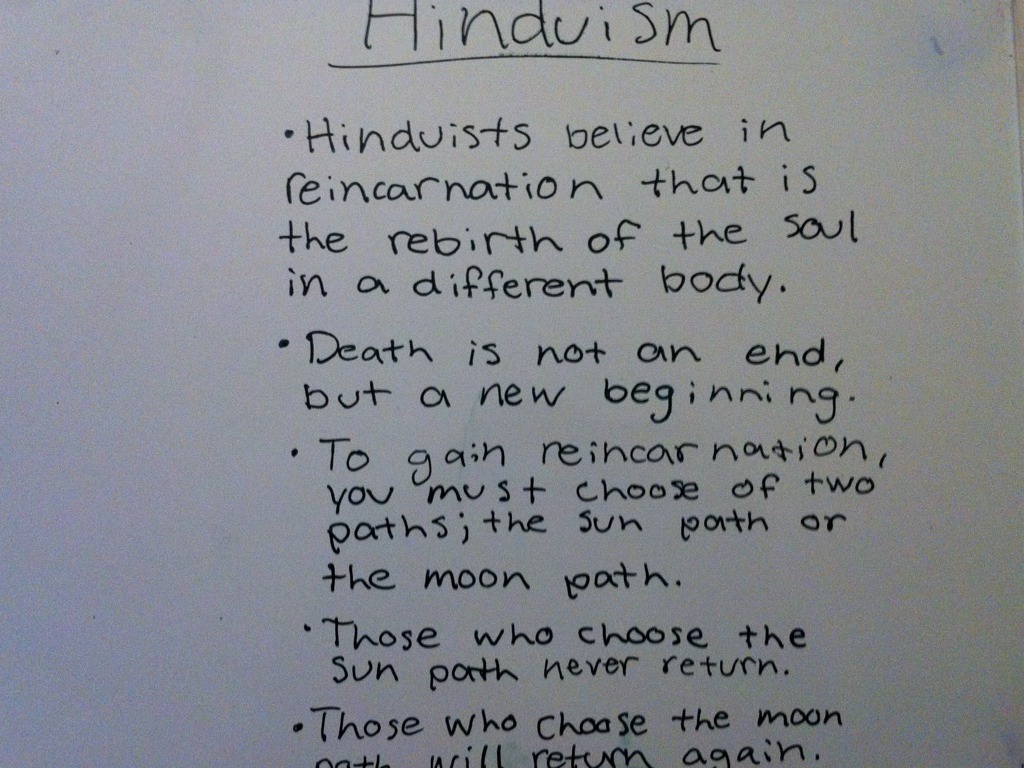 Hinduism
• Hinduists believe in
reincarnation that is
the rebirth of the soul
in a different body.
• Death is not an end,
but a new beginning.
• To gain reincarnation,
you must choose of two
paths; the sun path or
the moon path.
• Those who choose the
sun path never return.
• Those who choose the moon
path will return again.